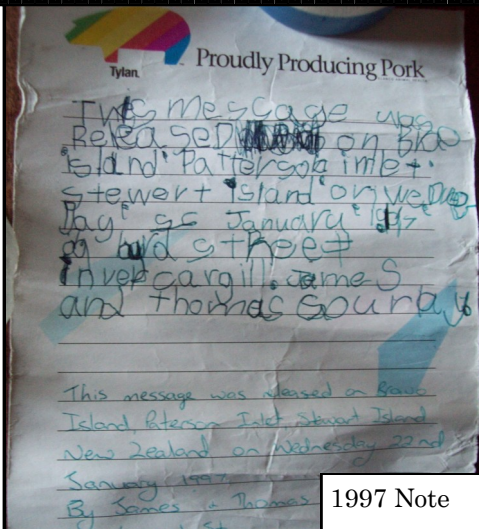 Tylan.
Proudly Producing Pork
This mescage was
ReleaseD on Bra
island Patterson inlet.
stewert island on wedne
Day 22 January 1997
street
invercargill. James
and thomas Gourlay
This message was released on Bravo
Island, Paterson Inlet, Stewart Island
New Zealand on Wednesday 22nd
January 1997.
By James & Thomas
1997 Note